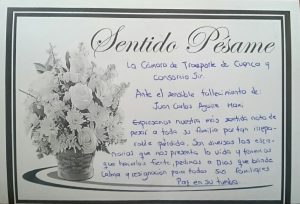 Sentido Pésame
La Cámara de Transporte de Cuenca y
Consorcio Sir.
Ante el sensible fallecimiento de:
Juan Carlos Aguirre
Expresamos nuestra más sentida nota de
pesar a toda su familia por tan irrepa-
rable pérdida. Son diversos los esce-
narios que nos presenta la vida y tenemos
que hacerles frente, pedimos a Dios que brinde
calma y resignación para todos sus familiares
Paz en su tumba.